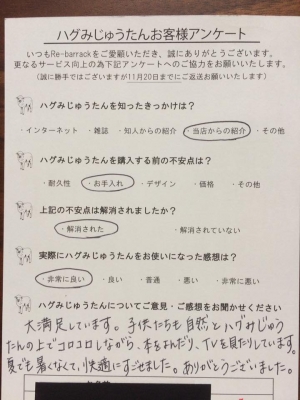 ハグみじゅうたんお客様アンケート
いつもRe-barrackをご愛顧いただき、誠にありがとうございます。
更なるサービス向上の為下記アンケートへのご協力をお願いいたします。
(誠に勝手ではございますが11月20日までにご返送お願いいたします)
ハグみじゅうたんを知ったきっかけは？
・インターネット ・雑誌 ・知人からの紹介 ・当店からの紹介 ・その他
ハグみじゅうたんを購入する前の不安点は？
・耐久性 ・お手入れ ・デザイン ・価格 ・その他
上記の不安点は解消されましたか？
・解消された ・解消されていない
実際にハグみじゅうたんをお使いになった感想は？
・非常に良い ・良い ・普通 ・悪い ・非常に悪い
ハグみじゅうたんについてご意見・ご感想をお聞かせください
大満足しています。子供たちも自然とハグみじゅう
たんの上でコロコロしながら、本をよんだり、TVを見たりしています。
夏でも暑くなくて、快適にすごせました。ありがとうございました。